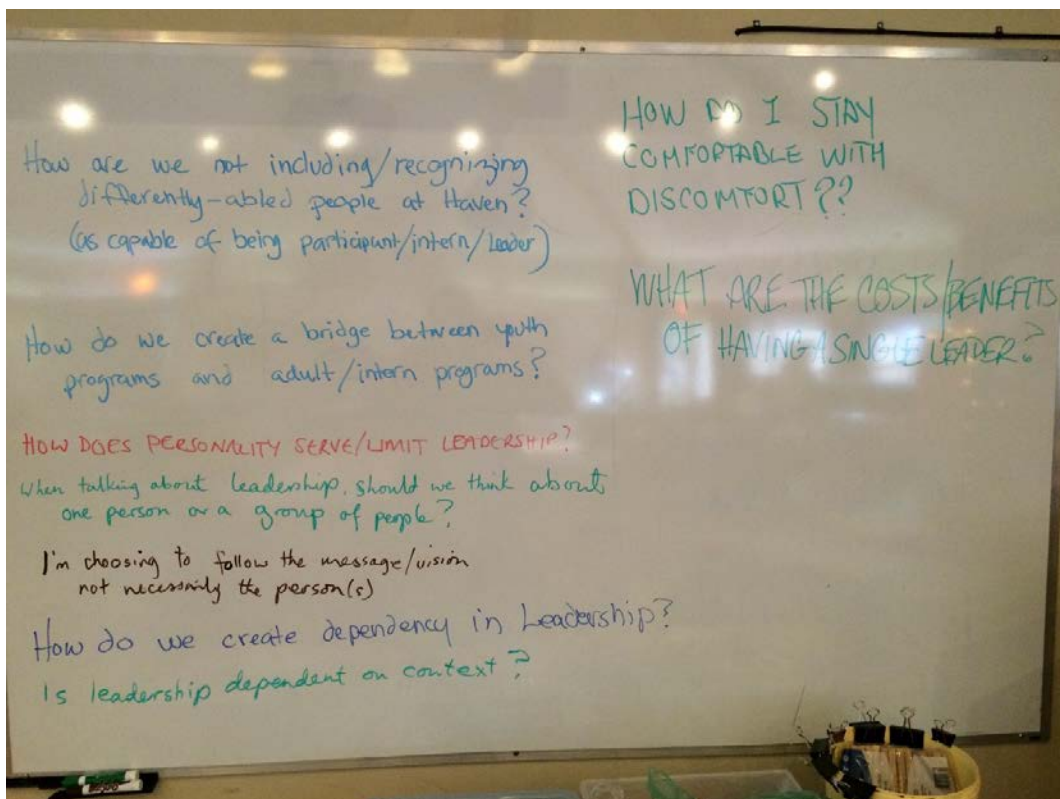 How are we not including/recognizing
differently-abled people at Haven?
(as capable of being participant/intern/leader)
How do we create a bridge between youth
programs and adult/intern programs?
HOW DOES PERSONALITY SERVE/LIMIT LEADERSHIP?
When talking about leadership, should we think about
one person or a group of people?
I'm choosing to follow the message/vision
not necessarily the person(s)
How do we create dependency in Leadership?
Is leadership dependent on context?
HOW DO I STAY
COMFORTABLE WITH
DISCOMFORT??
WHAT ARE THE COSTS/BENEFITS
OF HAVING A SINGLE LEADER?